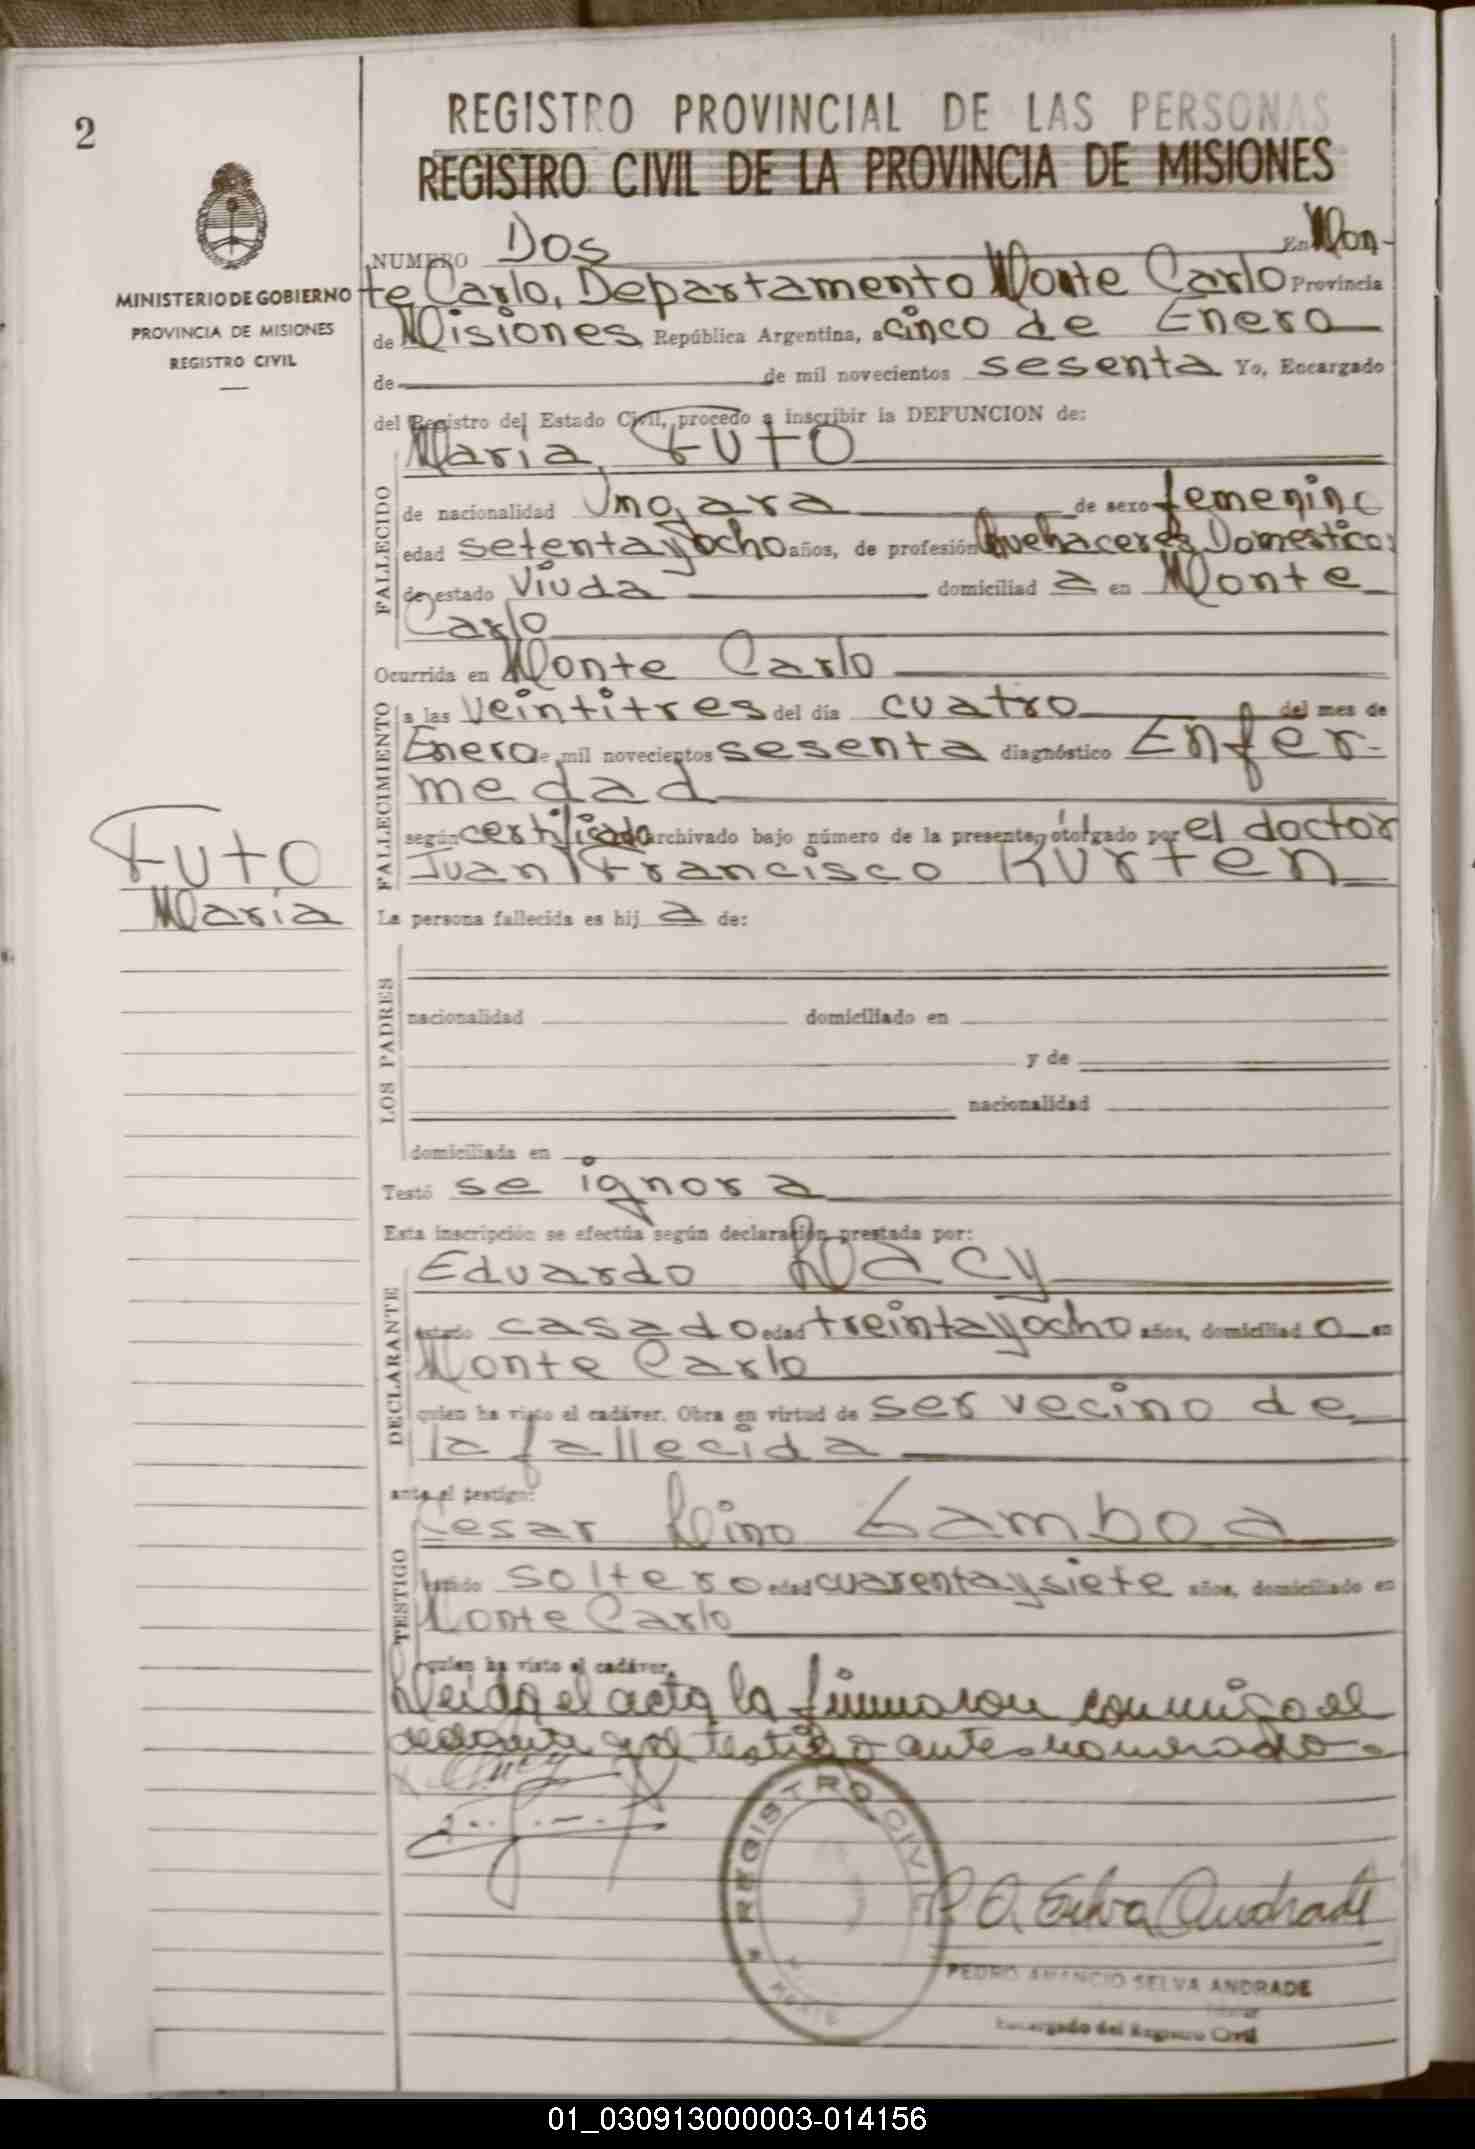 2
REGISTRO PROVINCIAL DE LAS PERSONAS
REGISTRO CIVIL DE LA PROVINCIA DE MISIONES
MINISTERIO DE GOBIERNO
PROVINCIA DE MISIONES
REGISTRO CIVIL
NUMERO Dos En Mon-
te Carlo, Departamento Monte Carlo Provincia
de Misiones República Argentina, a cinco de Enero
de de mil novecientos sesenta Yo, Encargado
del Registro del Estado Civil, procedo a inscribir la DEFUNCION de:
Maria FUTO
FALLECIDO
de nacionalidad Ungara de sexo femenino
edad setenta y ocho años, de profesión Quehaceres Domesticos
de estado Viuda domiciliad a en Monte
Carlo
Ocurrida en Monte Carlo
FALLECIMIENTO
a las Veintitres del día cuatro del mes de
Enero de mil novecientos sesenta diagnóstico Enfer-
medad
según certificado archivado bajo número de la presente, otorgado por el doctor
Juan Francisco Kurten
Futo
Maria
La persona fallecida es hij a de:
LOS PADRES
nacionalidad domiciliado en
y de
nacionalidad
domiciliada en
Testó se ignora
Esta inscripción se efectúa según declaración prestada por:
DECLARANTE
Eduardo
estado casado edad treinta y ocho años, domiciliad o en
Monte Carlo
quien ha visto el cadáver. Obra en virtud de ser vecino de
la fallecida
ante el testigo:
TESTIGO
Cesar Lino Gamboa
estado soltero edad cuarenta y siete años, domiciliado en
Monte Carlo
quien ha visto el cadáver.
Leida el acta la firmaron conmigo el
declarante y el testigo antes nombrado.
REGISTRO CIVIL
P. A. Selva Andrade
PEDRO AMANCIO SELVA ANDRADE
Encargado del Registro Civil
01_030913000003-014156